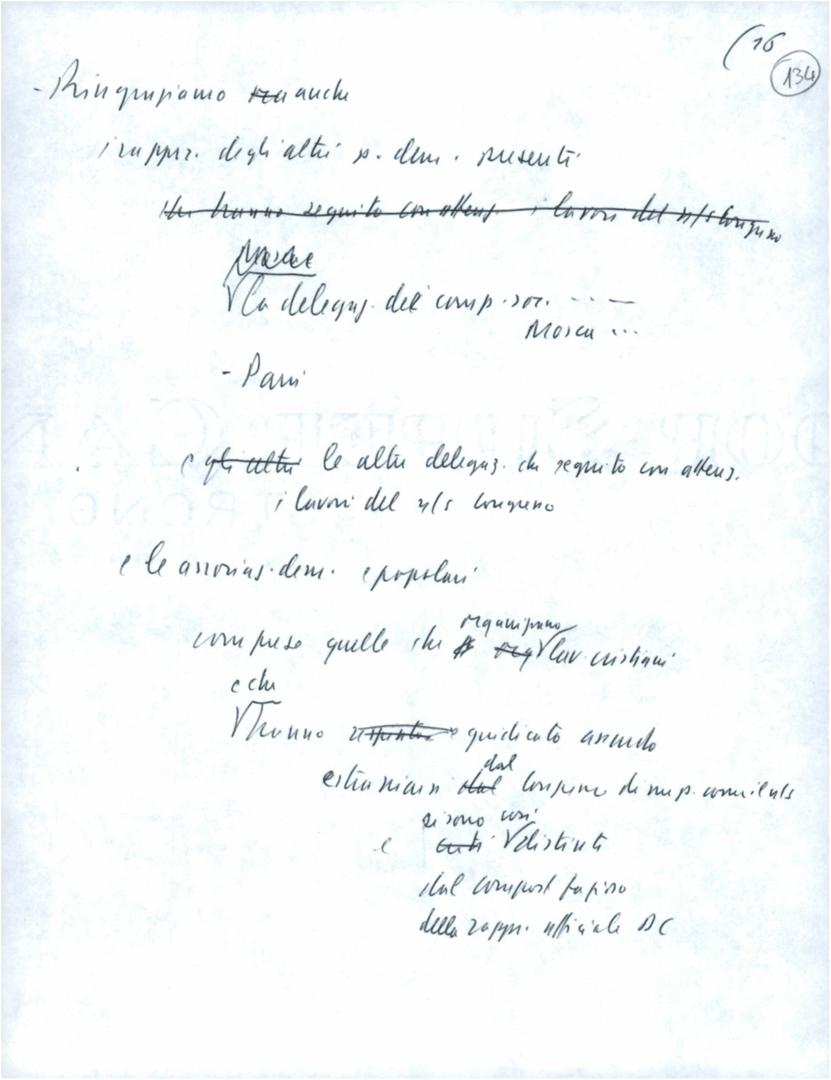 (16
134
- Ringraziamo anche
i rappr. degli altri p. dem. presenti
che hanno seguito con attenz. i lavori del n/s Congresso
la delegaz. dei comp. soc. ...
Mosca ...
- Parri
e gli altri le altre delegaz. che seguito con attenz.
i lavori del n/s Congresso
e le associaz. dem. e popolari
organizzano
comprese quelle che org lav. cristiani
e che
hanno giudicato assurdo
estraniarsi dal
dal Congresso di un p. come il n/s
si sono così
e distinti
dal comport. fazioso
della rappr. ufficiale DC